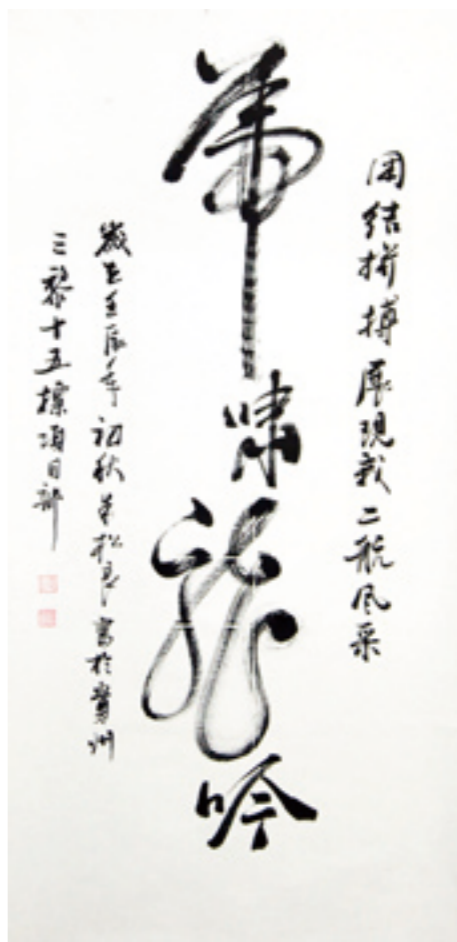 团结拼搏展现我二航风采
虎啸龙吟
岁在壬辰年初秋 松 写于贵州
三黎十五标项目部